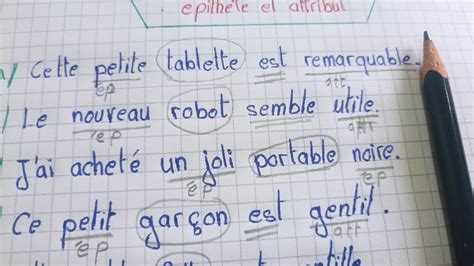 épithète et attribut
a/ Cette petite tablette est remarquable.
ép att
Le nouveau robot semble utile.
ép att
J'ai acheté un joli portable noire.
ép ép
Ce petit garçon est gentil.
ép att